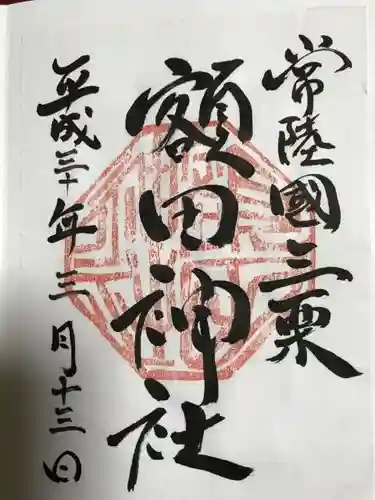 常陸國三栗
額田神社
平成三十年三月十三日